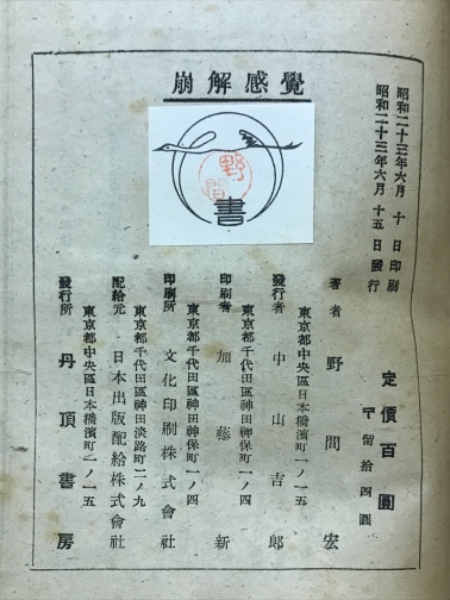 崩解感覺
昭和二十三年六月十日印刷
昭和二十三年六月十五日發行
定價百圓
〒留拾四圓
野間
書
著者 野間宏
東京都中央區日本橋濱町一ノ一五
發行者 中山吉郎
東京都千代田區神田神保町一ノ四
印刷者 加藤新
東京都千代田區神田神保町一ノ四
印刷所 文化印刷株式會社
東京都千代田區神田淡路町二ノ九
配給元 日本出版配給株式會社
東京都中央區日本橋濱町一ノ一五
發行所 丹頂書房